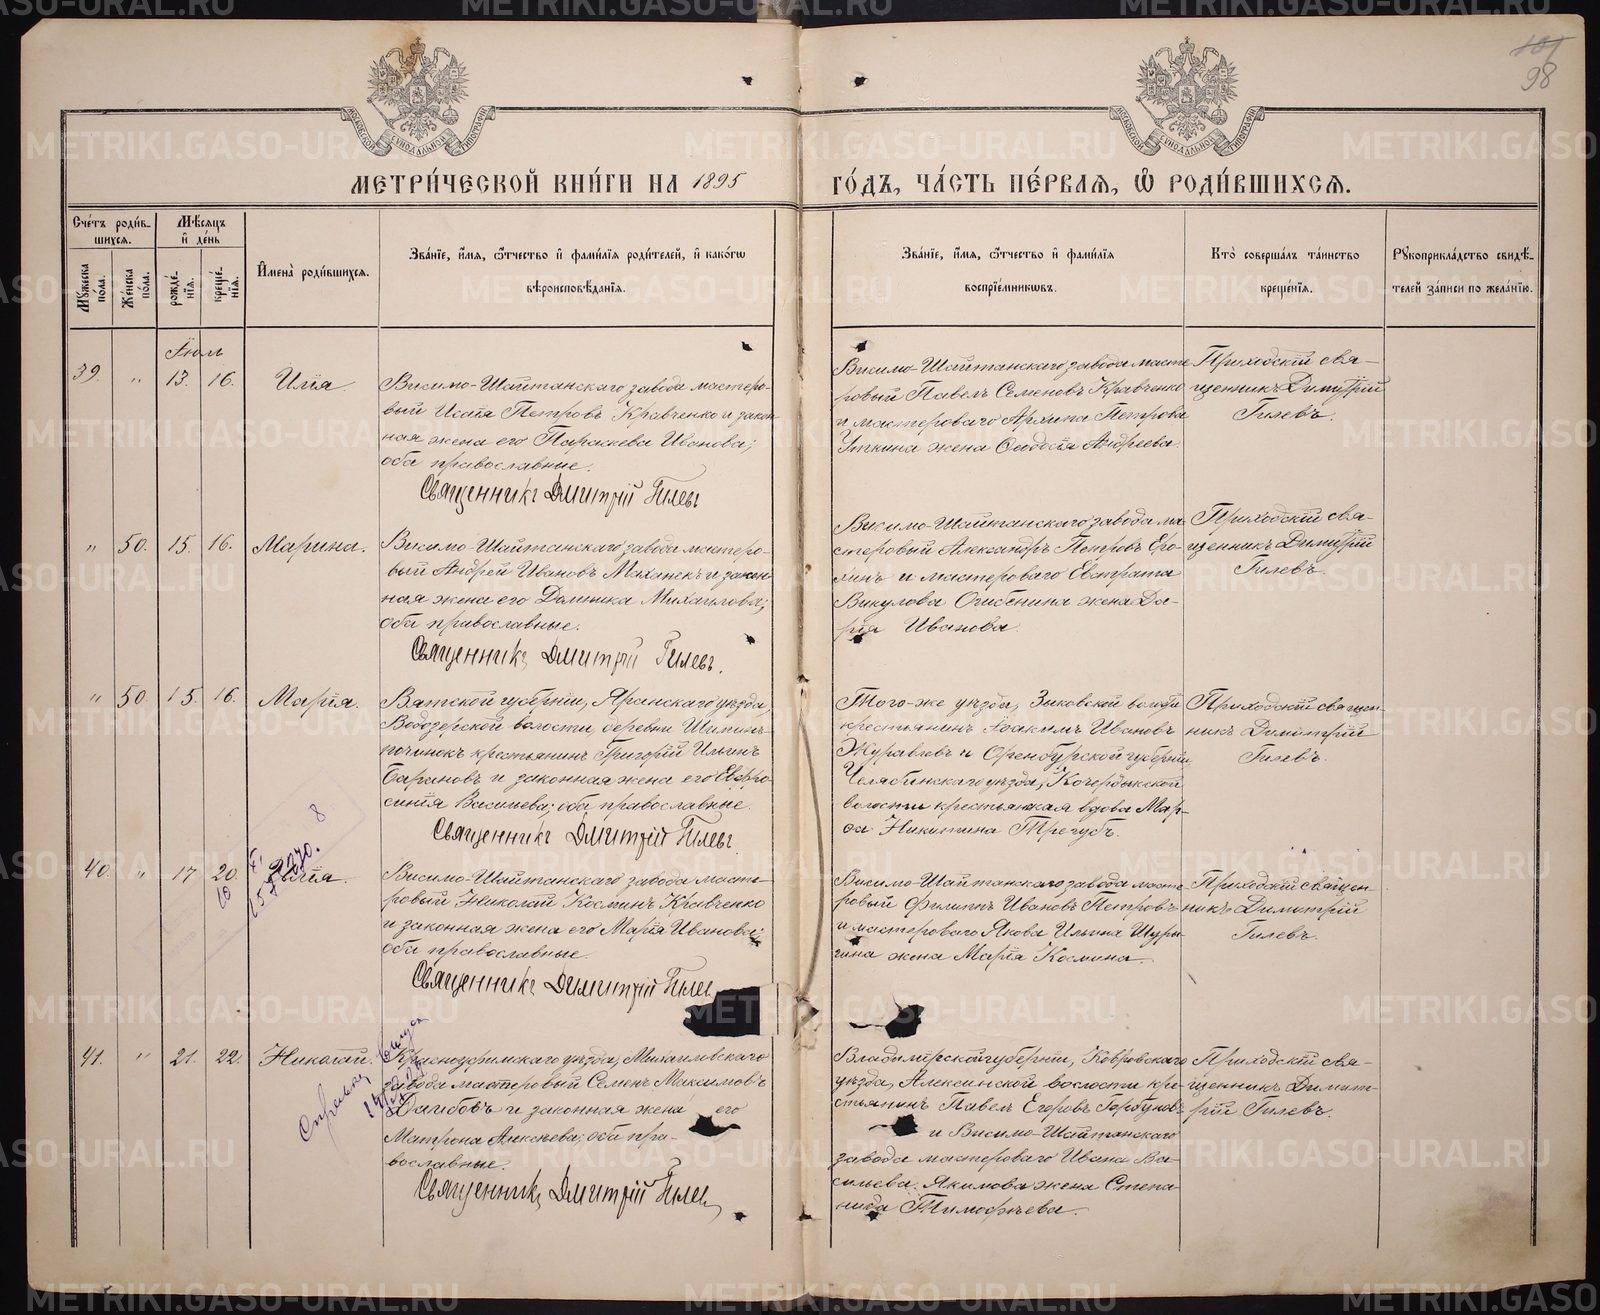 101
98
МЕТРИ́ЧЕСКОЙ КНИ́ГИ НА 1895
ГО́ДЪ, ЧА́СТЬ ПЕ́РВАѦ, Ѡ҆ РОДИ́ВШИХСѦ.
Сче́тъ роди́вшихсѧ.
Мꙋжеска по́ла.
Же́нска по́ла.
Мѣ́сѧцъ и҆ де́нь
рожде́нїѧ.
креще́нїѧ.
И҆мена̀ роди́вшихсѧ.
Зва́нїе, и҆́мѧ, ѻ҆́тчество и҆ фами́лїѧ роди́телей, и҆ како́гѡ
вѣроисповѣ́данїѧ.
Зва́нїе, и҆́мѧ, ѻ҆́тчество и҆ фами́лїѧ
воспрїе́мникѡвъ.
Кто̀ соверша́лъ та́инство
креще́нїѧ.
Рꙋкоприкла́дство свидѣ́-
телей за́писи по жела́нїю.
Іюль
39. " 13. 16. Илія
Висимо-Шайтанскаго завода мастеро-
вый Исаія Петровъ Кравченко и закон
ная жена его Параскева Иванова;
оба православные.
Священникъ Димитрій Гилевъ
Висимо-Шайтанскаго завода масте
ровый Павелъ Семеновъ Кравченко
и мастероваго Архипа Петрова
Уткина жена Ѳеодосія Андреева.
Приходскій свя-
щенникъ Димитрій
Гилевъ.
" 50. 15. 16. Марина.
Висимо-Шайтанскаго завода мастеро-
вый Андрей Ивановъ Маханек и закон
ная жена его Домника Михаилова;
оба православные.
Священникъ Димитрій Гилевъ.
Висимо-Шайтанскаго завода ма-
стеровый Александръ Петровъ Еро-
хинъ и мастероваго Евстрата
Викулова Огибенина жена Да-
рія Иванова.
Приходскій свя-
щенникъ Димитрій
Гилевъ.
" 50. 15. 16. Марія.
Вятской губерніи, Яранскаго уѣзда,
Водозерской волости, деревни
починокъ крестьянинъ Григорій Ильинъ
Барановъ и законная жена его Евфро
синія Васильева; оба православные.
Священникъ Димитрій Гилевъ.
Того-же уѣзда, Зыковской волости
крестьянинъ Іоакимъ Ивановъ
Журавлевъ и Оренбурской губерніи
Челябинскаго уѣзда, Кочердыкской
волости крестьянская вдова Мар-
ѳа Никитина Трегубъ.
Приходскій священ
никъ Димитрій
Гилевъ.
40. " 17 20. Илія.
Висимо-Шайтанскаго завода масте-
ровый Николай Косминъ Кравченко
и законная жена его Марія Иванова;
оба православные.
Священникъ Димитрій Гилев
Висимо-Шайтанскаго завода масте
ровый Филиппъ Ивановъ Петровъ
и мастероваго Якова Ильина Шуры
гина жена Марія Космина.
Приходскій священ
никъ Димитрій
Гилевъ.
41. " 21. 22. Николай.
Красноуфимскаго уѣзда, Михаиловскаго
завода мастеровый Семенъ Максимовъ
и законная жена его
Матрона Алексѣева; оба пра-
вославные.
Священникъ Димитрій Гилев
Владимірской губерніи, Ковровскаго
уѣзда, Алексинской волости кре-
стьянинъ Павелъ Егоровъ Горбуновъ
и Висимо-Шайтанскаго
завода мастероваго Ивана Ва-
сильева Якимова жена Степа
нида Тимофѣева.
Приходскій свя-
щенникъ Димит-
рій Гилевъ.
METRIKI.GASO-URAL.RU